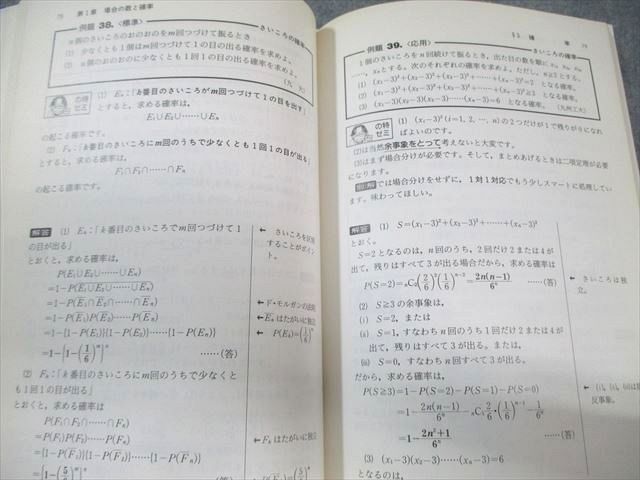 78 第1章 場合の数と確率
例題 38.〈標準〉
さいころの確率
n個のさいころのおのおのをm回つづけて振るとき,
(1) 少なくとも1個はm回つづけて1の目の出る確率を求めよ.
(2) n個のおのおのに少なくとも1回1の目が出る確率を求めよ.
(九 大)
の特ゼミ
(1) E_k:「k番目のさいころがm回つづけて1の目を出す」
とすると, 求める確率は
E_1∪E_2∪……∪E_n
の起こる確率です.
(2) F_k:「k番目のさいころにm回のうちで少なくとも1回1の目が出る」
とすると, 求める確率は,
F_1∩F_2∩……∩F_n
の起こる確率です.
解答 (1) E_k:「k番目のさいころでm回つづけて1
の目が出る」
とおくと, 求める確率は,
P(E_1∪E_2∪……∪E_n)
=1-P(\overline{E_1∪E_2∪……∪E_n})
=1-P(\overline{E}_1∩\overline{E}_2∩……∩\overline{E}_n)
=1-P(\overline{E}_1)P(\overline{E}_2)……P(\overline{E}_n)
=1-{1-P(E_1)}{1-P(E_2)}……{1-P(E_n)}
=1-{1-(1/6)^m}^n ……(答)
← さいころを区別
することがポイン
ト.
← ド・モルガンの法則
← E_kはたがいに独立
← P(E_k)=(1/6)^m
(2) F_k:「k番目のさいころにm回のうちで少なくと
も1回1の目が出る」
とおくと, 求める確率は
P(F_1∩F_2∩……∩F_n)
=P(F_1)P(F_2)……P(F_n)
={1-P(\overline{F}_1)}{1-P(\overline{F}_2)}……{1-P(\overline{F}_n)}
← F_kはたがいに独立
§3 確 率 79
例題 39.〈応用〉
さいころの確率
1個のさいころをn回続けて振るとき, 出た目の数を順に x_1, x_2,
…, x_nとする. 次のそれぞれの確率を求めよ. ただし, n≧2とする.
(1) (x_1-3)²+(x_2-3)²+(x_3-3)²+……+(x_n-3)²=2 となる確率.
(2) (x_1-3)²+(x_2-3)²+(x_3-3)²+……+(x_n-3)²≧3 となる確率.
(3) (x_1-3)(x_2-3)(x_3-3)……(x_n-3)=6 となる確率. (九州工大)
の特ゼミ
(1) (x_i-3)²(i=1, 2, …, n)の2つだけが1で残りが0になれ
ばよいのです.
(2)は当然余事象をとって考えないと大変です.
(3)はまず場合分けが必要です. そして, まとめあげるときは二項定理が必要
になります.
別解では場合分けをせずに, 1対1対応でもう少しスマートに処理してい
ます. 味わってほしい.
解答 (1) S=(x_1-3)²+(x_2-3)²+……+(x_n-3)²
とおく.
S=2となるのは, n回のうち, 2回だけ2または4が
出て, 残りはすべて3が出る場合だから, 求める確率は
P(S=2)=_nC_2(2/6)²(1/6)^{n-2}=2n(n-1)/6^n ……(答)
← さいころは独
立.
(2) S≧3の余事象は,
(i) S=2, または
(ii) S=1, すなわちn回のうち1回だけ2または4が
出て, 残りはすべて3が出る. または,
(iii) S=0, すなわちn回すべて3が出る.
だから, 求める確率は
P(S≧3)=1-P(S=2)-P(S=1)-P(S=0)
=1-2n(n-1)/6^n-_nC_1 2/6・(1/6)^{n-1}-1/6^n
=1-(2n²+1)/6^n ……(答)
(3) (x_1-3)(x_2-3)……(x_n-3)=6
となるのは,